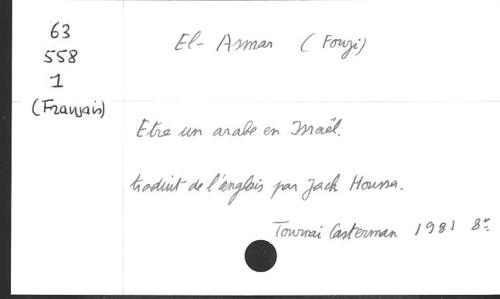 63
558
1
(Français)
El-Asmar (Fouzi)
Etre un arabe en Israël.
traduit de l'anglais par Jack Houssa.
Tournai Casterman 1981 8°